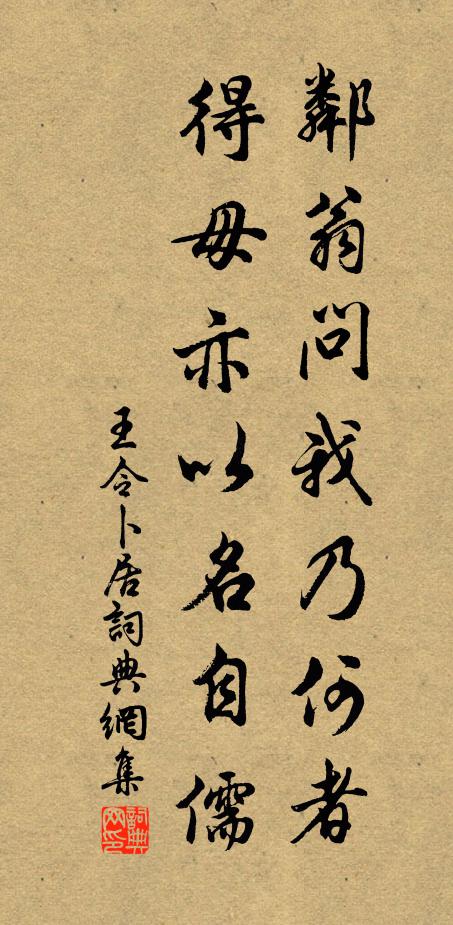 鄰翁問我乃何者
得毋亦以名自儒
王令卜居詞典網集
詞典網印